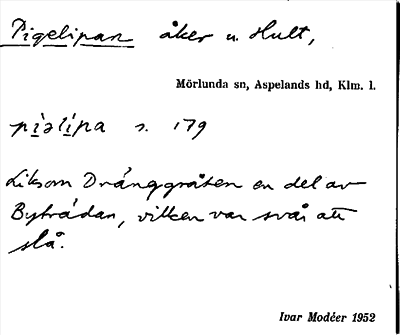 Pigelipan åker u. Hult,
Mörlunda sn, Aspelands hd, Klm. l.
piəlipa s. 179
Liksom Dränggråten en del av
Bytrådan, vilken var svår att
slå.
Ivar Modéer 1952